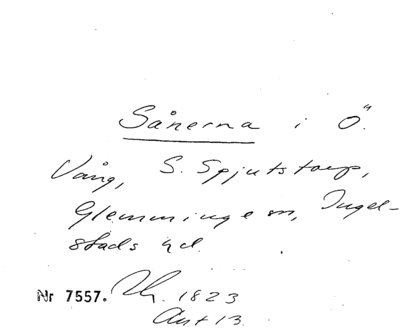 Sånerna i Ö.
Vång, S. Spjutstorp,
Glemminge sn, Ingel-
stads hd.
Nr 7557. 1823
Ant 13